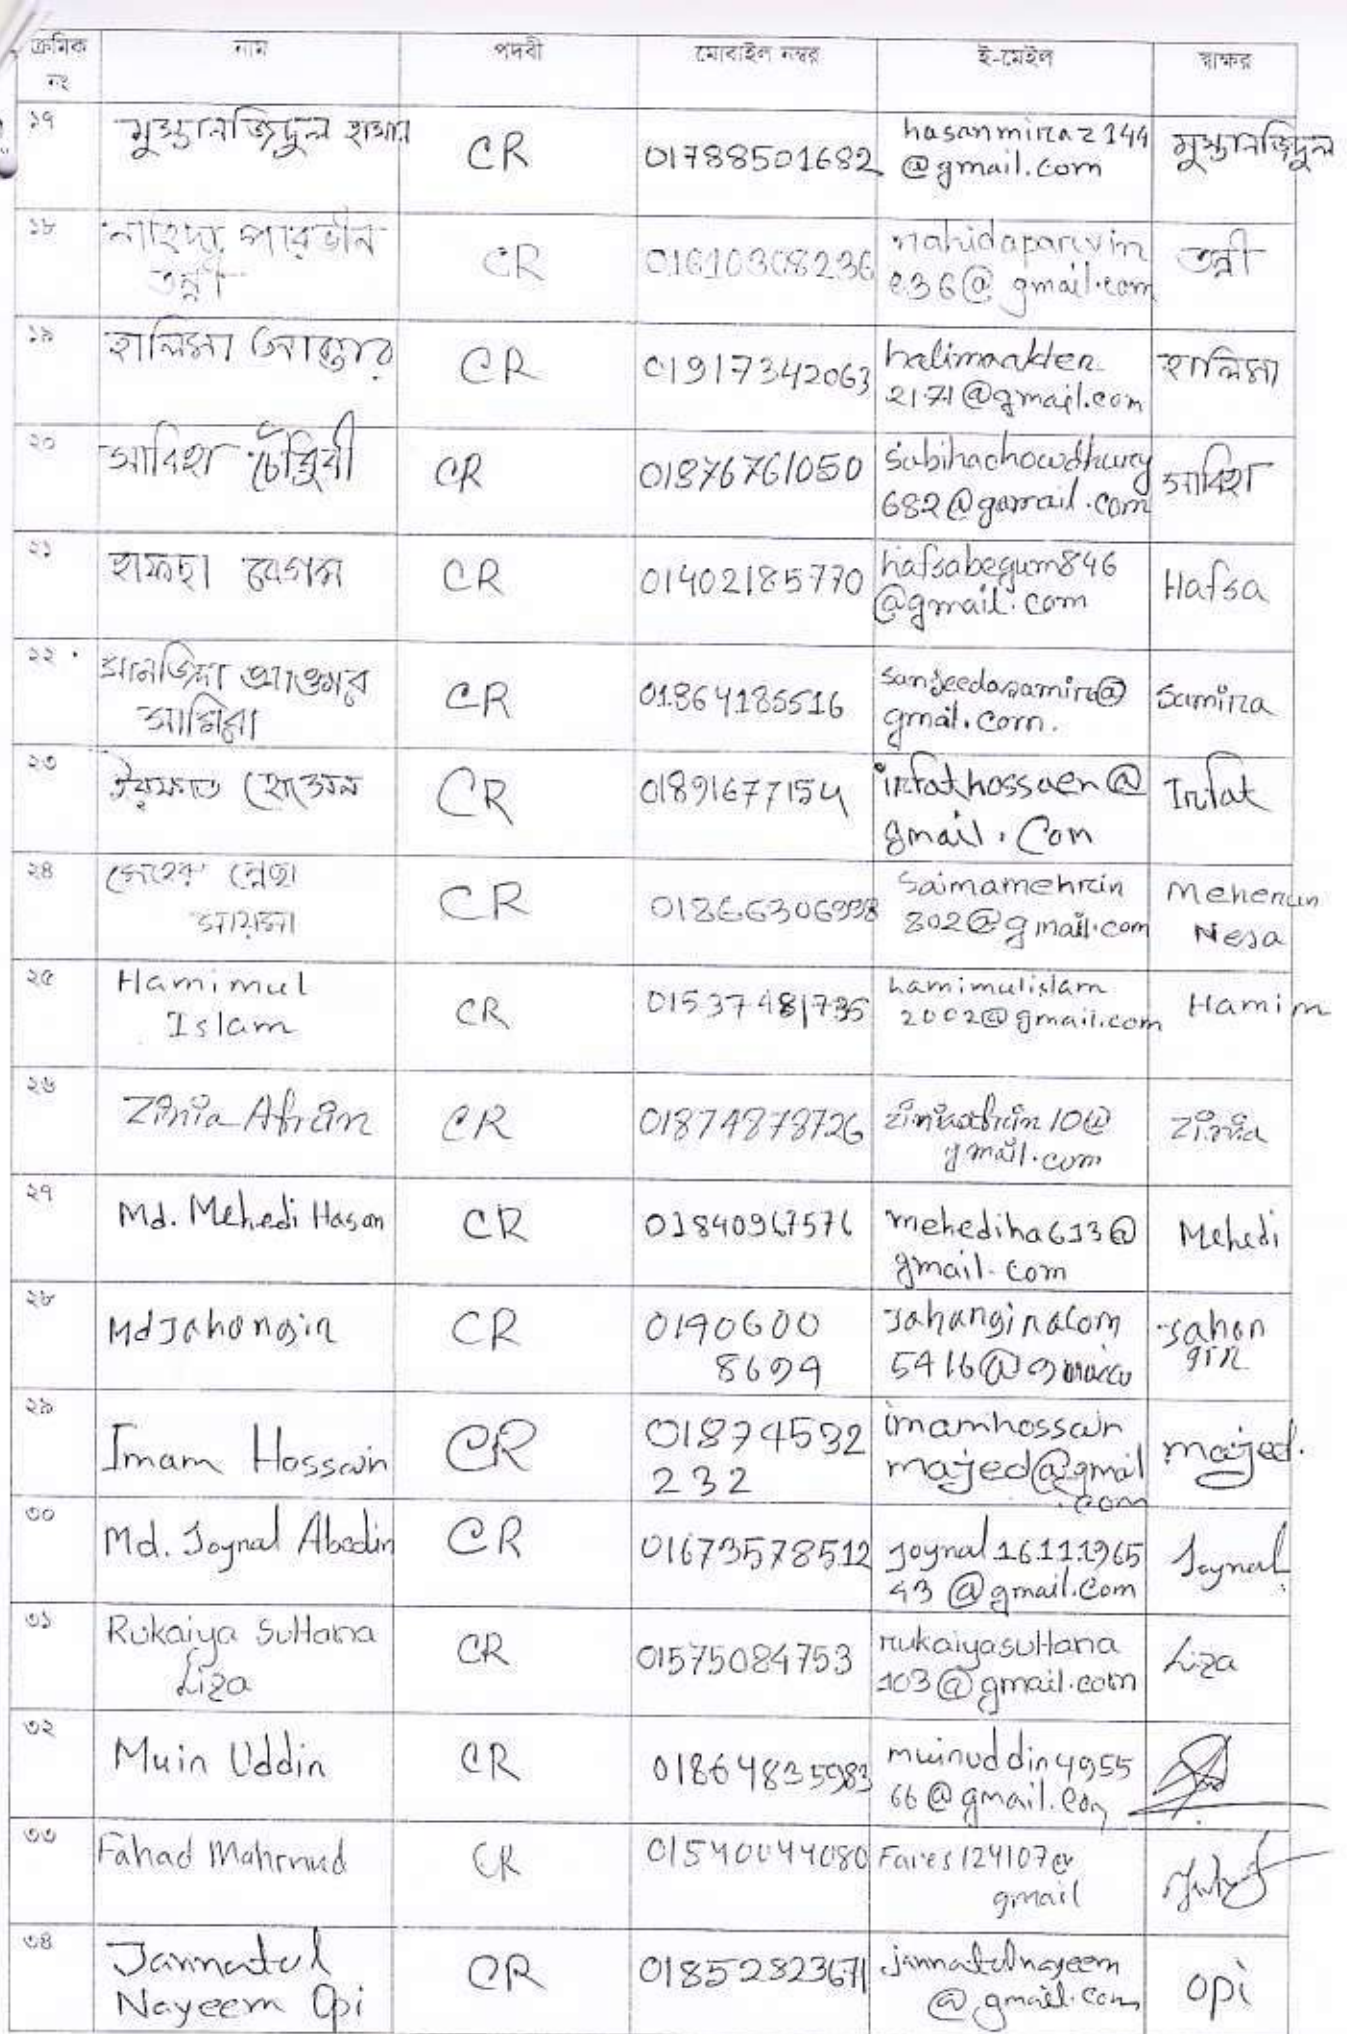 ক্রমিক নং নাম পদবী মোবাইল নম্বর ই-মেইল স্বাক্ষর
১৭ মুস্তানজিদুল হাসান CR 01788501682 hasanmiraz144 @gmail.com মুস্তানজিদুল
১৮ নাহিদা পারভীন তন্নী CR 01610308236 nahidaparvin 236@gmail.com তন্নী
১৯ হালিমা আক্তার CR 01917342063 halimaakter 2171@gmail.com হালিমা
২০ সাবিহা চৌধুরী CR 01876761050 sabihachowdhury 682@gmail.com সাবিহা
২১ হাফছা বেগম CR 01402185770 hafsabegum846 @gmail.com Hafsa
২২ সানজিদা আক্তার সামিরা CR 01864185516 sanjeedasamira@ gmail.com. Samira
২৩ ইরফাত হোসেন CR 01891677154 irfathossaen@ gmail.com Irfat
২৪ মেহের নেছা সায়মা CR saimamehrin 802@gmail.com Meherun Nesa
২৫ Hamimul Islam CR 01537481735 hamimulislam 2002@gmail.com Hamim
২৬ Zinia Afrin CR 01874878726 ziniaafrin10@ gmail.com Zinia
২৭ Md. Mehedi Hasan CR 01840967576 mehediha613@ gmail.com Mehedi
২৮ Md Jahangir CR 0190600 8699 Jahangiralom 5416@ Jahan gir
২৯ Imam Hossain CR 01874532 232 imamhossain majed@gmail .com majed.
৩০ Md. Joynal Abedin CR 01673578512 joynal16111965 43@gmail.com Joynal
৩১ Rukaiya Sultana Liza CR 01575084753 rukaiyasultana 103@gmail.com Liza
৩২ Muin Uddin CR 01864835983 muinuddin4955 66@gmail.com
৩৩ Fahad Mahmud CR 01540044080 Fares124107@ gmail
৩৪ Jannatul Nayeem Opi CR 01852823671 jannatulnayeem @gmail.com opi